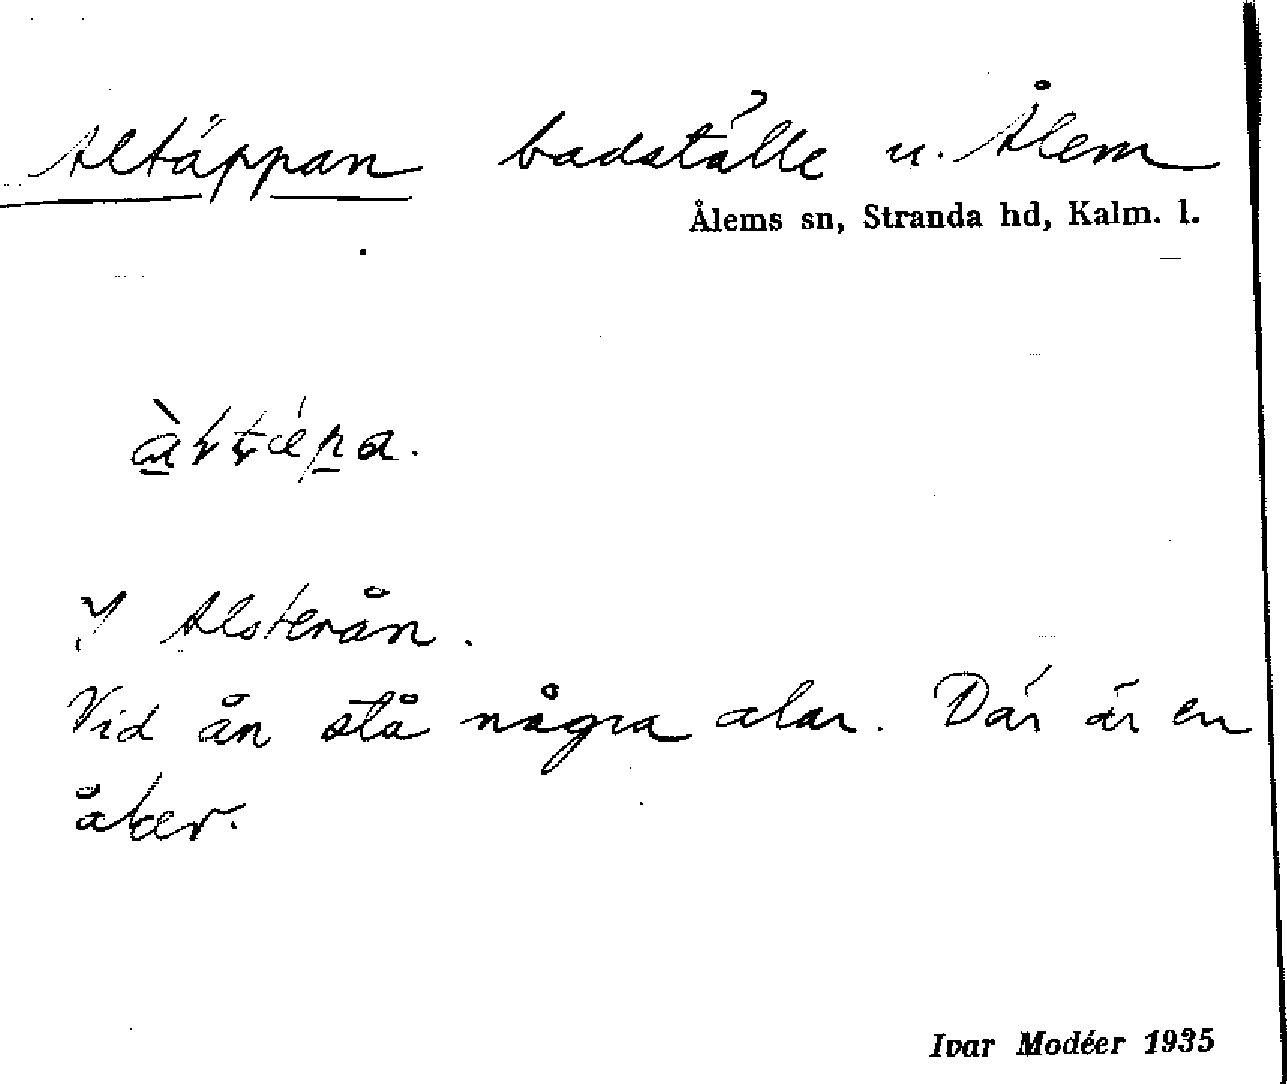 Altäppan badställe u. Ålem
Ålems sn, Stranda hd, Kalm. l.
I Alsterån.
Vid ån stå några alar. Där är en
åker.
Ivar Modéer 1935